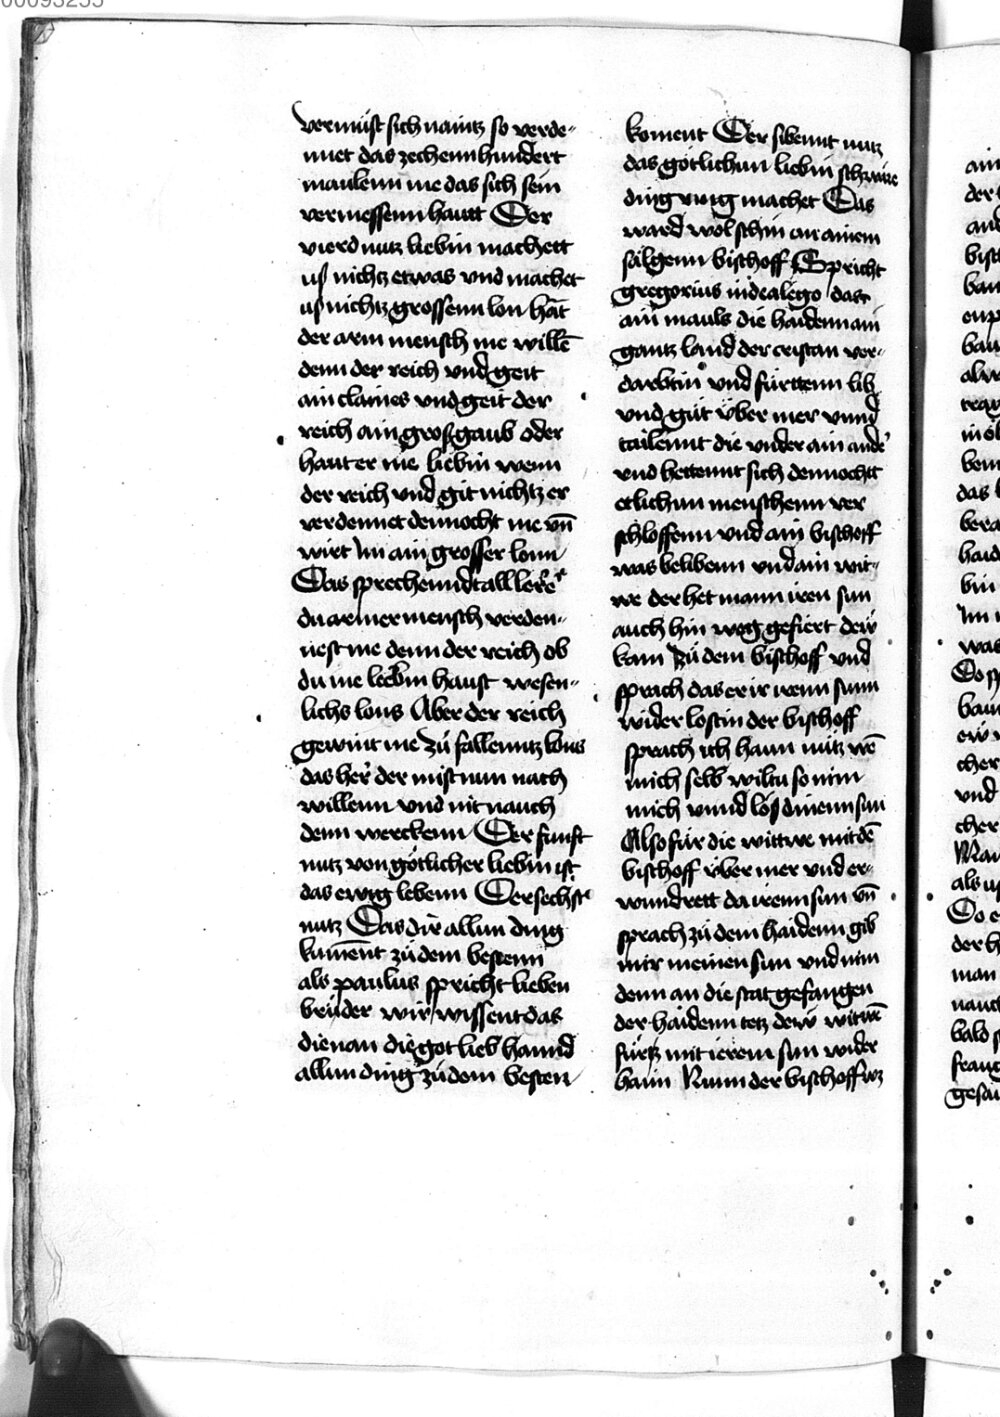 00093255
vermüst sich naintz so verde-
nnet das zechenn hundert
maulenn me das sich sein
vermessenn hautt Der
vierd nutz liebin machett
us nichtz etwas und machet
us nichtz grossenn lon hāt
der arm mensch me willē
denn der reich und geit
ain claines und geit der
reich ain gros gaub oder
haut er me liebin wenn
der reich und git nichtz er
verdennet dennocht me vn̄
wirt Im ain grosser lonn
Das sprechenndt all lerer
du armer mensch verden-
nest me denn der reich ob
du me liebin haust wesen-
lichs lons Aber der reich
gewint me zü fallenntz lons
das her der mist nun nach
willenn und nit nauch
denn werckenn Der funft
nutz von götlicher liebin ist
das ewig lebenn Der sechst
nutz Das dir allun ding
kument zü dem bestenn
als paulus spricht lieben
brüder wir wissent das
die nan die got lieb hannd
allun ding zü dem besten
koment Der sibennt nutz
das götlichun liebin schwäre
ding ring machet Das
ward wol schin an ainem
sälgenn bischoff Spricht
gregorius in dealego das
ain mauls die haidenn ain
gantz land der cristan ver-
darbtin und fürttenn lib
und güt über mer unnd
tailennt die under ain ander
und hettennt sich dennochtt
etlichun menschenn ver
schloffenn und ain bischoff
was belibenn und ain wit-
we der het mann iren sun
auch hin weg gefiert dew
kam zü dem bischoff und
sprach das er ir irenn sunn
wider lostin der bischoff
sprach ich hann nütz wē
mich selb wiltu so nim
mich unnd lös dinenn sun
Also für die wittwe mit dē
bischoff über mer und er-
wundrett da irenn sun vn̄
sprach zü dem haidenn gib
mir meinen sun und nim
denn an die stat gefangen
der haidenn tetz dew witwē
fürtz mit ierem sun wider
haim Nunn der bischoff wz